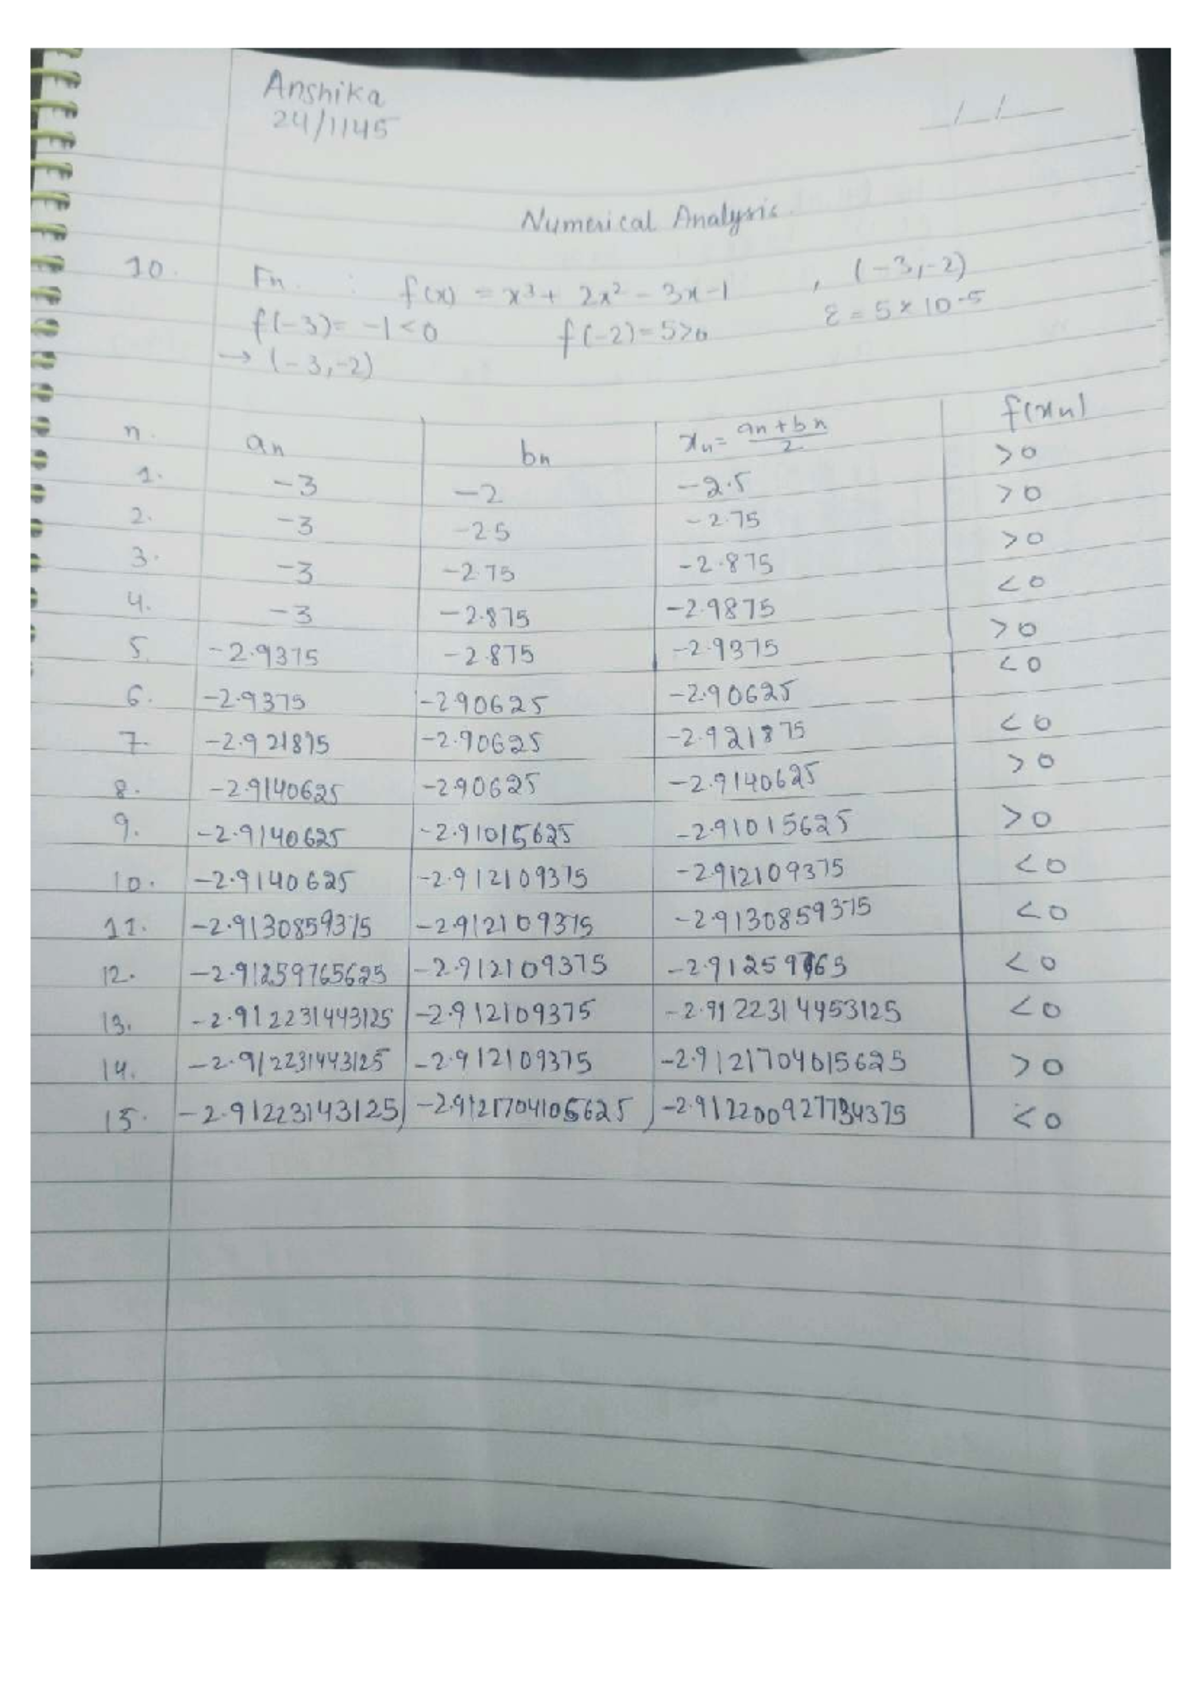 Anshika
24/1145
_/_/__
Numerical Analysis
10. Fn : f(x) = x³ + 2x² - 3x - 1 , (-3,-2)
f(-3) = -1 < 0 f(-2) = 5>0 ε = 5 × 10-5
→ (-3,-2)
n. an bn xn = an + bn / 2 f(xn)
1. -3 -2 -2.5 >0
2. -3 -25 -2.75 >0
3. -3 -2.75 -2.875 >0
4. -3 -2.875 -2.9875 <0
5. -2.9375 -2.875 -2.9375 >0
6. -2.9375 -2.90625 -2.90625 <0
7. -2.921875 -2.90625 -2.921875 <0
8. -2.9140625 -2.90625 -2.9140625 >0
9. -2.9140625 -2.91015625 -2.91015625 >0
10. -2.9140625 -2.912109375 -2.912109375 <0
11. -2.9130859375 -2.912109375 -2.9130859375 <0
12. -2.91259765625 -2.912109375 -2.91259765 <0
13. -2.912231443125 -2.912109375 -2.9122314453125 <0
14. -2.912231443125 -2.912109375 -2.9121704615625 >0
15. -2.91223143125 -2.9121704105625 -2.912200927734375 <0